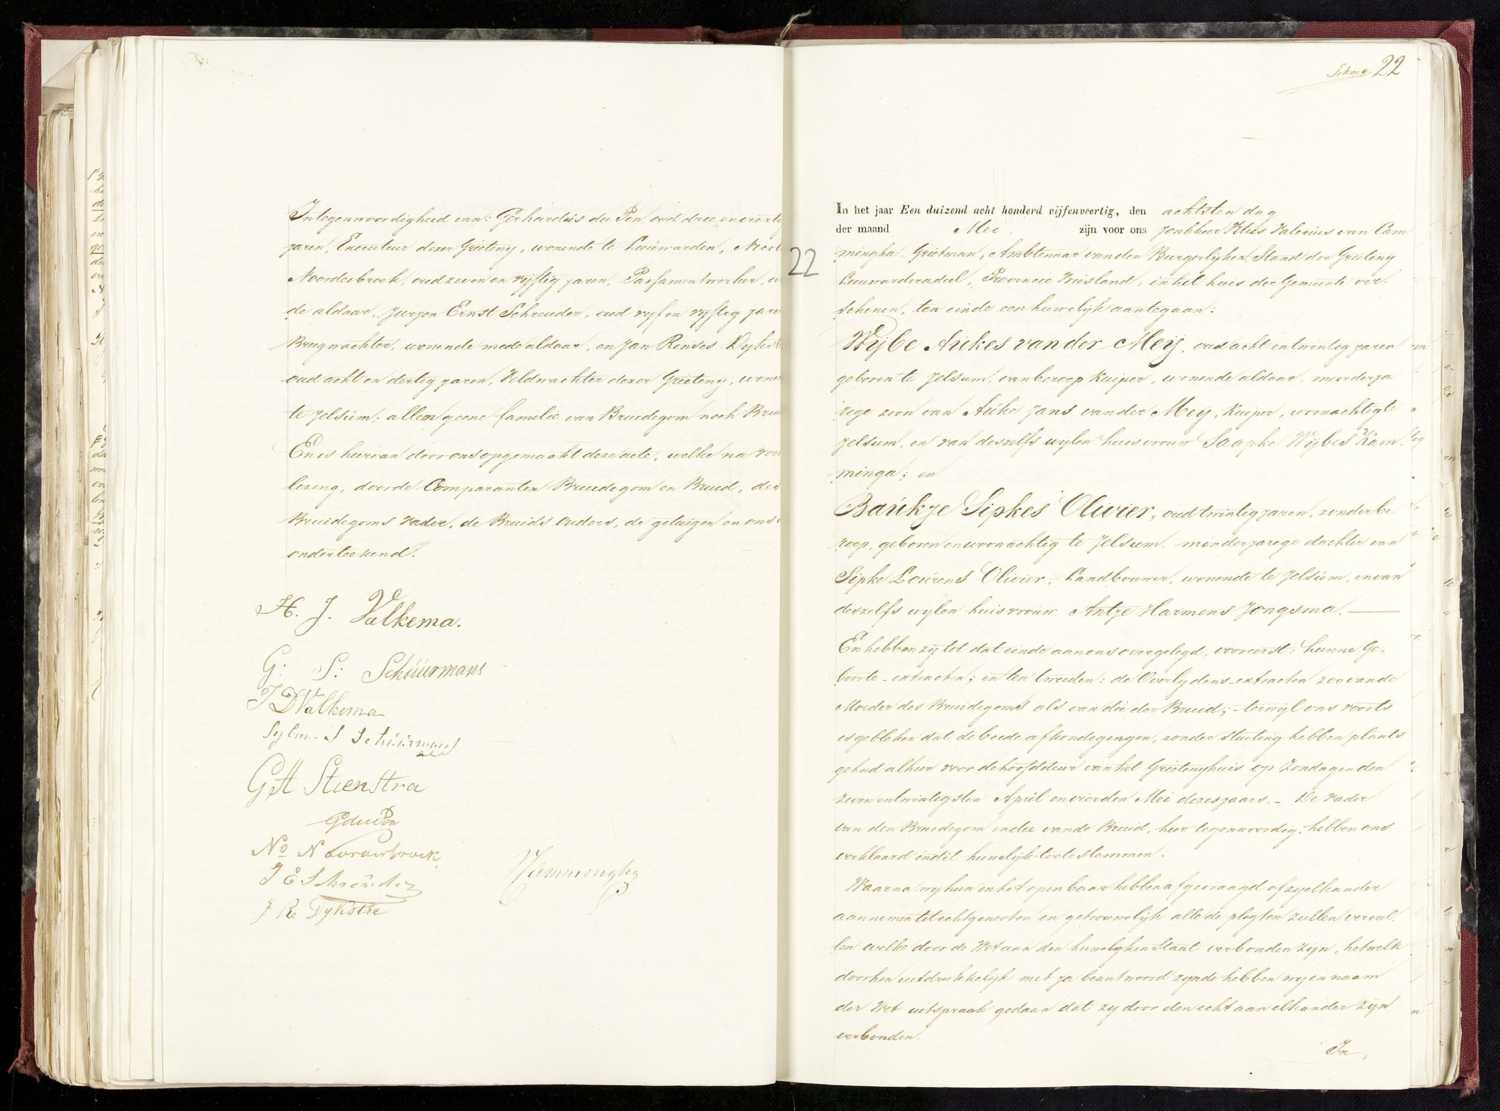 In tegenwoordigheid van: Gerhardus du Pon oud drie en
jaren, Executeur dezer Grieteny, wonende te Leeuwarden,
Noordenbroek, oud zeven en vyftig jaren,
de aldaar, Jurjen Ernst Schreuder, oud vyf en vyftig jaren
Brugwachter, wonende mede aldaar, en Jan Rinses Dykstra
oud acht en dertig jaren, Veldwachter dezer Grieteny, wonen
te Jelsum, allen geene familie van Bruidegom noch Bruid
En is hiervan door ons opgemaakt deze acte, welke na voor
lezing, door de Comparanten Bruidegom en Bruid, des
Bruidegoms vader, de Bruids ouders, de getuigen en ons is
onderteekend.
H. J. Valkema.
G: S: Schuurmans
J D Valkema
S Schuurmans
G A Stienstra
G du Pon
No Noordenbroek
J E Schreuder
J R Dykstra
Cammingha
22
22
In het jaar Een duizend acht honderd vijfenveertig, den achtsten dag
der maand Mei zijn voor ons Jonkheer Valerius van Cam
mingha Grietman, Ambtenaar van den Burgerlyken Stand der Grieteny
Leeuwarderadeel, Provincie Vriesland, in het huis der Gemeente ver
schenen, ten einde een huwelijk aantegaan:
Wijbe Aukes van der Meij, oud acht en twintig jaren
geboren te Jelsum, van beroep kuiper, wonende aldaar, meerderja
rige zoon van Auke Jans van der Meij, Kuiper, woonachtig te
Jelsum, en van deszelfs wylen huisvrouw Saapke Wijbes Kam
minga; en
Baukje Sipkes Olivier, oud twintig jaren, zonder be
roep, geboren en woonachtig te Jelsum, minderjarige dochter van
Sipke Lourens Olivier, Landbouwer, wonende te Jelsum, en van
deszelfs wylen huisvrouw Antje Harmens Jongsma.
En hebben zij tot dat einde aan ons overgelegd, vooreerst: hunne Ge-
boorte-extracten; en ten tweeden: de Overlydens-extracten zoo van de
Moeder des Bruidegoms als van die der Bruid; terwyl ons voorts
is gebleken dat de beide afkondigingen, zonder stuiting hebben plaats
gehad alhier voor de hoofddeur van het Grietenyhuis op Zondagen den
zeven en twintigsten April en vierden Mei dezes jaars. De vader
van den Bruidegom en die van de Bruid, hier tegenwoordig, hebben ons
verklaard in dit huwelijk toe te stemmen.
Waarna wy hun in het openbaar hebben afgevraagd of zy elkander
aannemen tot echtgenooten en getrouwelijk alle de pligten zullen vervul
len welke door de Wet aan den huwelyken Staat verbonden zyn, hetwelk
door hen uitdrukkelijk met ja beantwoord zynde hebben wy in naam
der Wet uitspraak gedaan dat zy door den echt aan elkander zyn
verbonden.
In